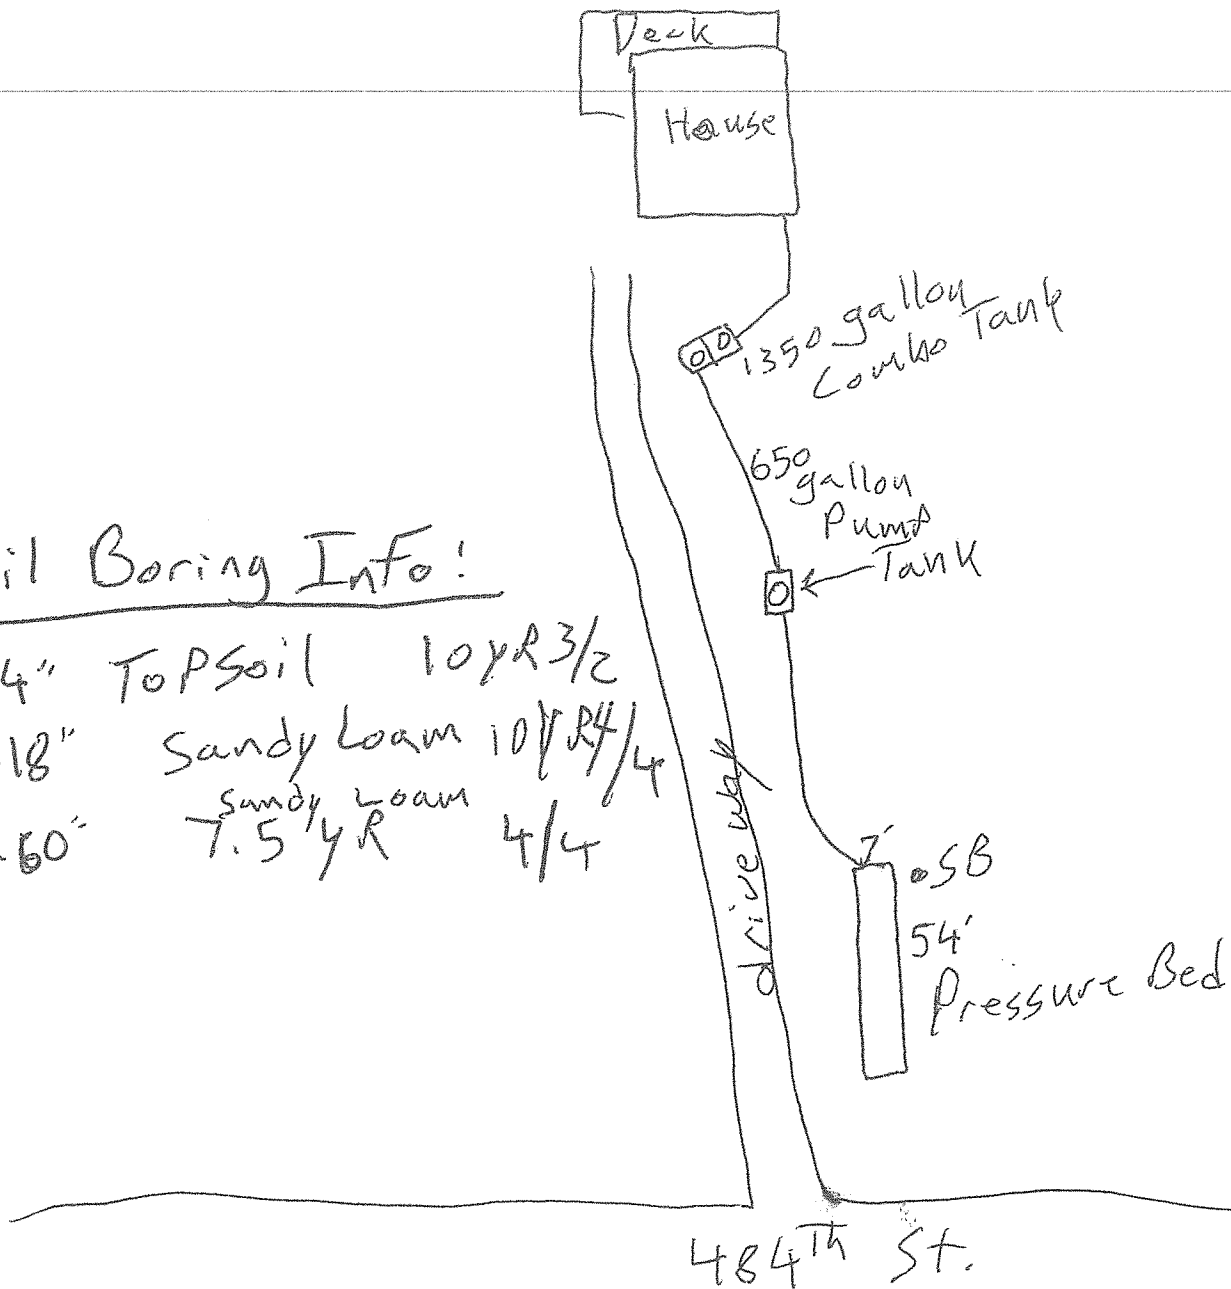 Deck
House
1350 gallon
Combo Tank
650
gallon
Pump
Tank
il Boring Info!
4" TopSoil 10yR 3/2
18" Sandy Loam 10YR 4/4
Sandy Loam
-60" 7.5 yR 4/4
driveway
7'
SB
54'
Pressure Bed
484Th St.